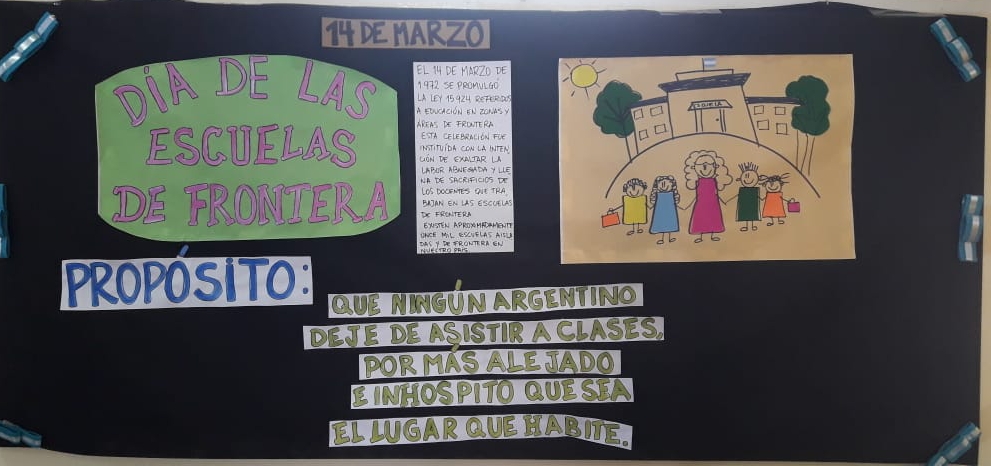 14 DE MARZO
DÍA DE LAS
ESCUELAS
DE FRONTERA
EL 14 DE MARZO DE
1972 SE PROMULGÓ
LA LEY 15924 REFERIDOS
A EDUCACIÓN EN ZONAS Y
ÁREAS DE FRONTERA
ESTA CELEBRACIÓN FUE
INSTITUÍDA CON LA INTEN
CIÓN DE EXALTAR LA
LABOR ABNEGADA Y LLE
NA DE SACRIFICIOS DE
LOS DOCENTES QUE TRA
BAJAN EN LAS ESCUELAS
DE FRONTERA
EXISTEN APROXIMADAMENTE
ONCE MIL ESCUELAS AISLA
DAS Y DE FRONTERA EN
NUESTRO PAÍS
ESCUELA
PROPÓSITO:
QUE NINGÚN ARGENTINO
DEJE DE ASISTIR A CLASES,
POR MÁS ALEJADO
E INHOSPITO QUE SEA
EL LUGAR QUE HABITE.